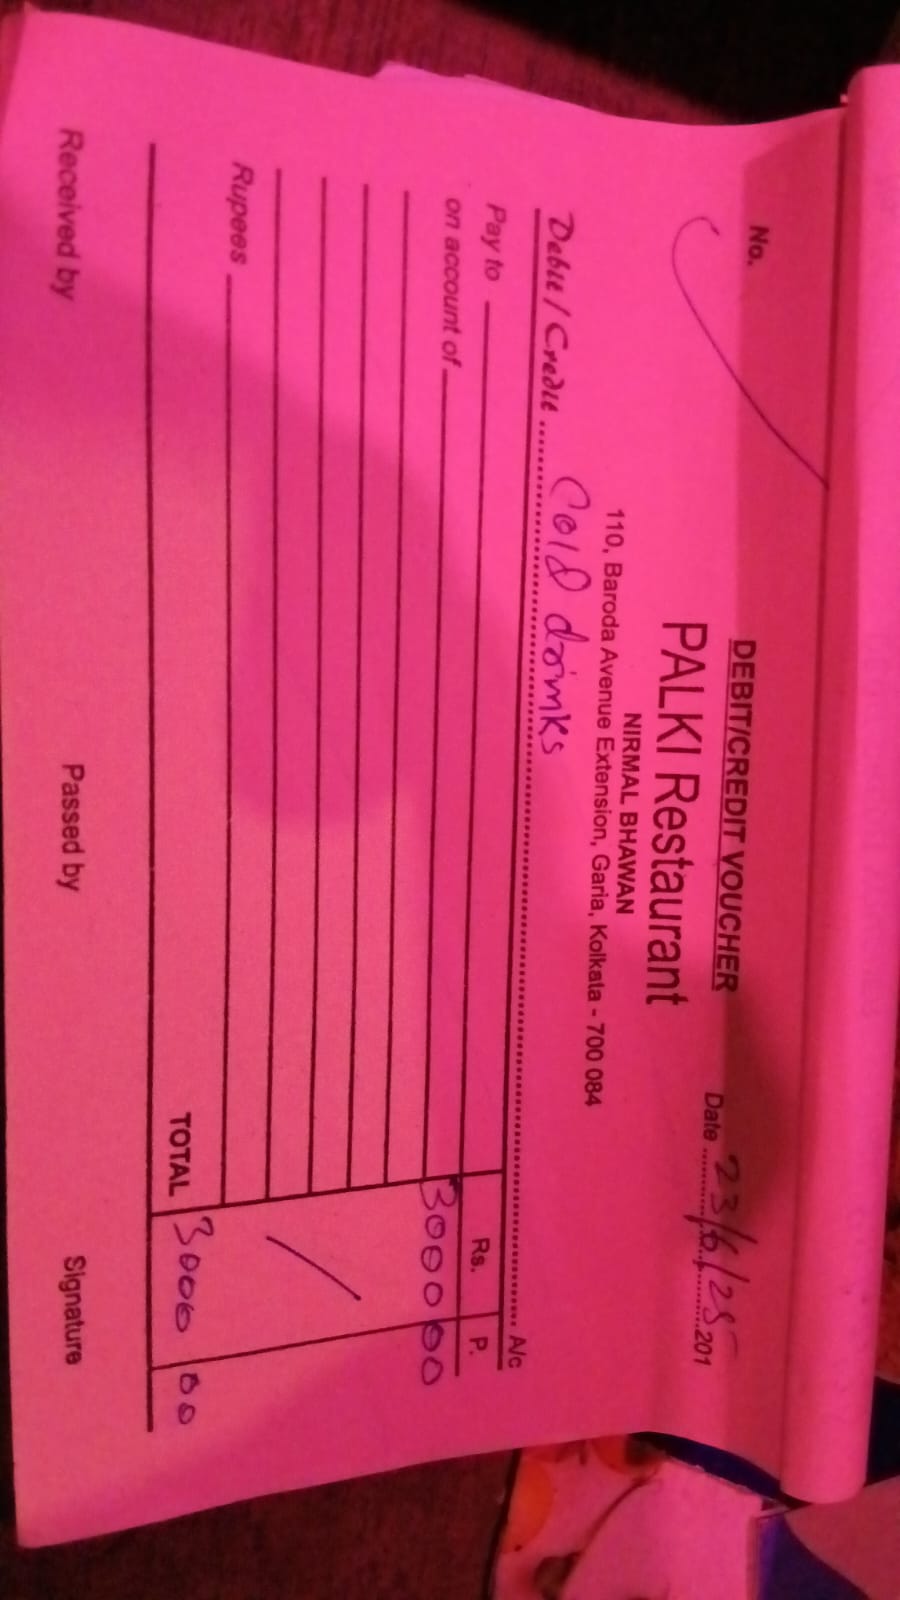 No.
DEBIT/CREDIT VOUCHER
Date 23/6/25 201
PALKI Restaurant
NIRMAL BHAWAN
110, Baroda Avenue Extension, Garia, Kolkata - 700 084
Debit / Credit Cold drinks A/c
Pay to Rs. P.
on account of 3000 00
Rupees
TOTAL 3000 00
Received by Passed by Signature